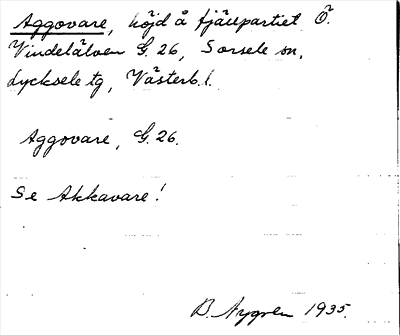 Aggovare, höjd å fjällpartiet Ö.
Vindelälven G. 26, Sorsele sn,
Lycksele tg, Västerb. l.
Aggovare, G. 26.
Se Akkavare!
B. Nygren 1935.